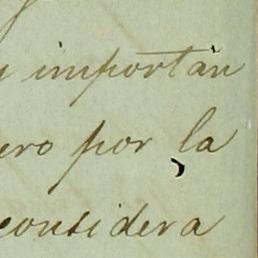 y importan
ero por la
considera